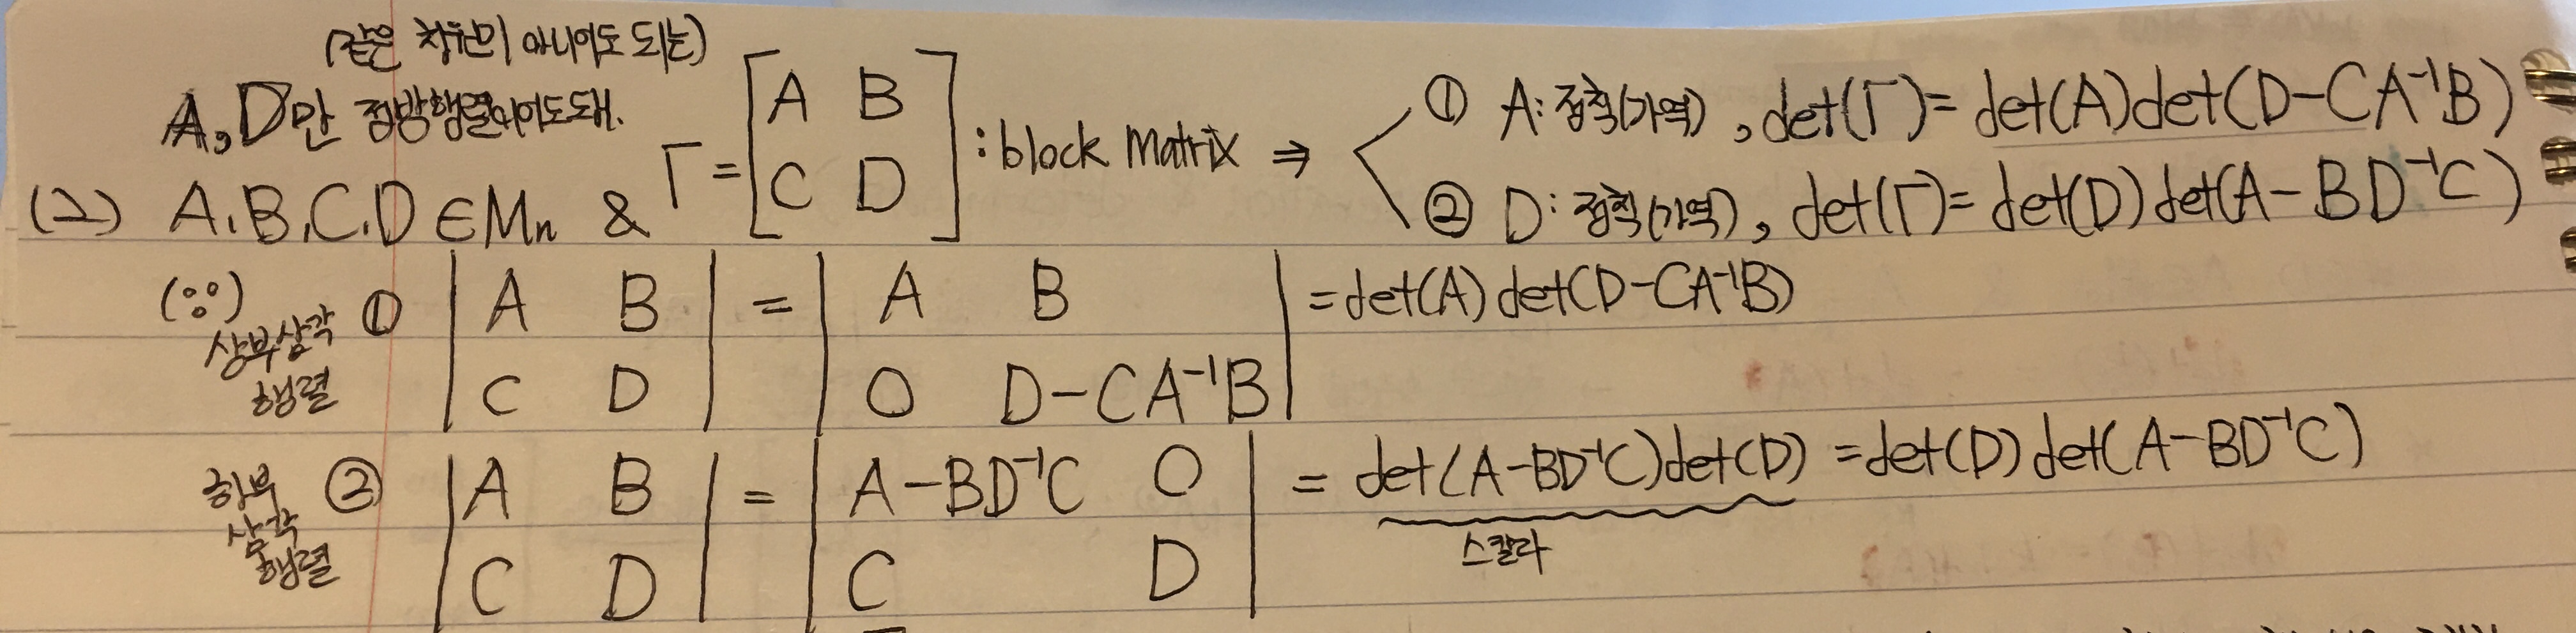 (같은 차원이 아니어도 되는)
A, D만 정방행렬이어도돼.
(2) A,B,C,D ∈ Mn & Γ = [A B; C D] : block Matrix ⇒
① A: 정칙(가역), det(Γ)= det(A)det(D-CA⁻¹B)
② D: 정칙(가역), det(Γ)= det(D)det(A-BD⁻¹C)
(∵) 상부삼각행렬 ① |A B; C D| = |A B; O D-CA⁻¹B| = det(A)det(D-CA⁻¹B)
하부삼각행렬 ② |A B; C D| = |A-BD⁻¹C O; C D| = det(A-BD⁻¹C)det(D) = det(D)det(A-BD⁻¹C)
스칼라